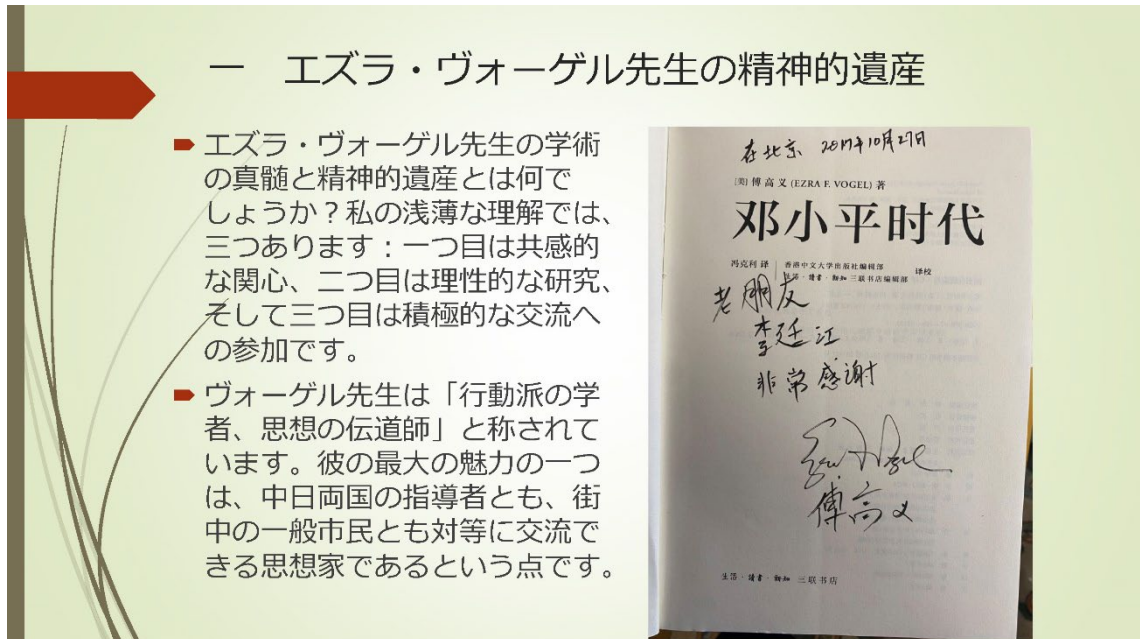 一　エズラ・ヴォーゲル先生の精神的遺産
エズラ・ヴォーゲル先生の学術
の真髄と精神的遺産とは何で
しょうか？私の浅薄な理解では、
三つあります：一つ目は共感的
な関心、二つ目は理性的な研究、
そして三つ目は積極的な交流へ
の参加です。
ヴォーゲル先生は「行動派の学
者、思想の伝道師」と称されて
います。彼の最大の魅力の一つ
は、中日両国の指導者とも、街
中の一般市民とも対等に交流で
きる思想家であるという点です。
在北京 2017年10月27日
[美] 傅高义 (EZRA F. VOGEL) 著
邓小平时代
冯克利 译
香港中文大学出版社编辑部
生活·读书·新知 三联书店编辑部
译校
老朋友
李廷江
非常感谢
傅高义
生活·读书·新知 三联书店